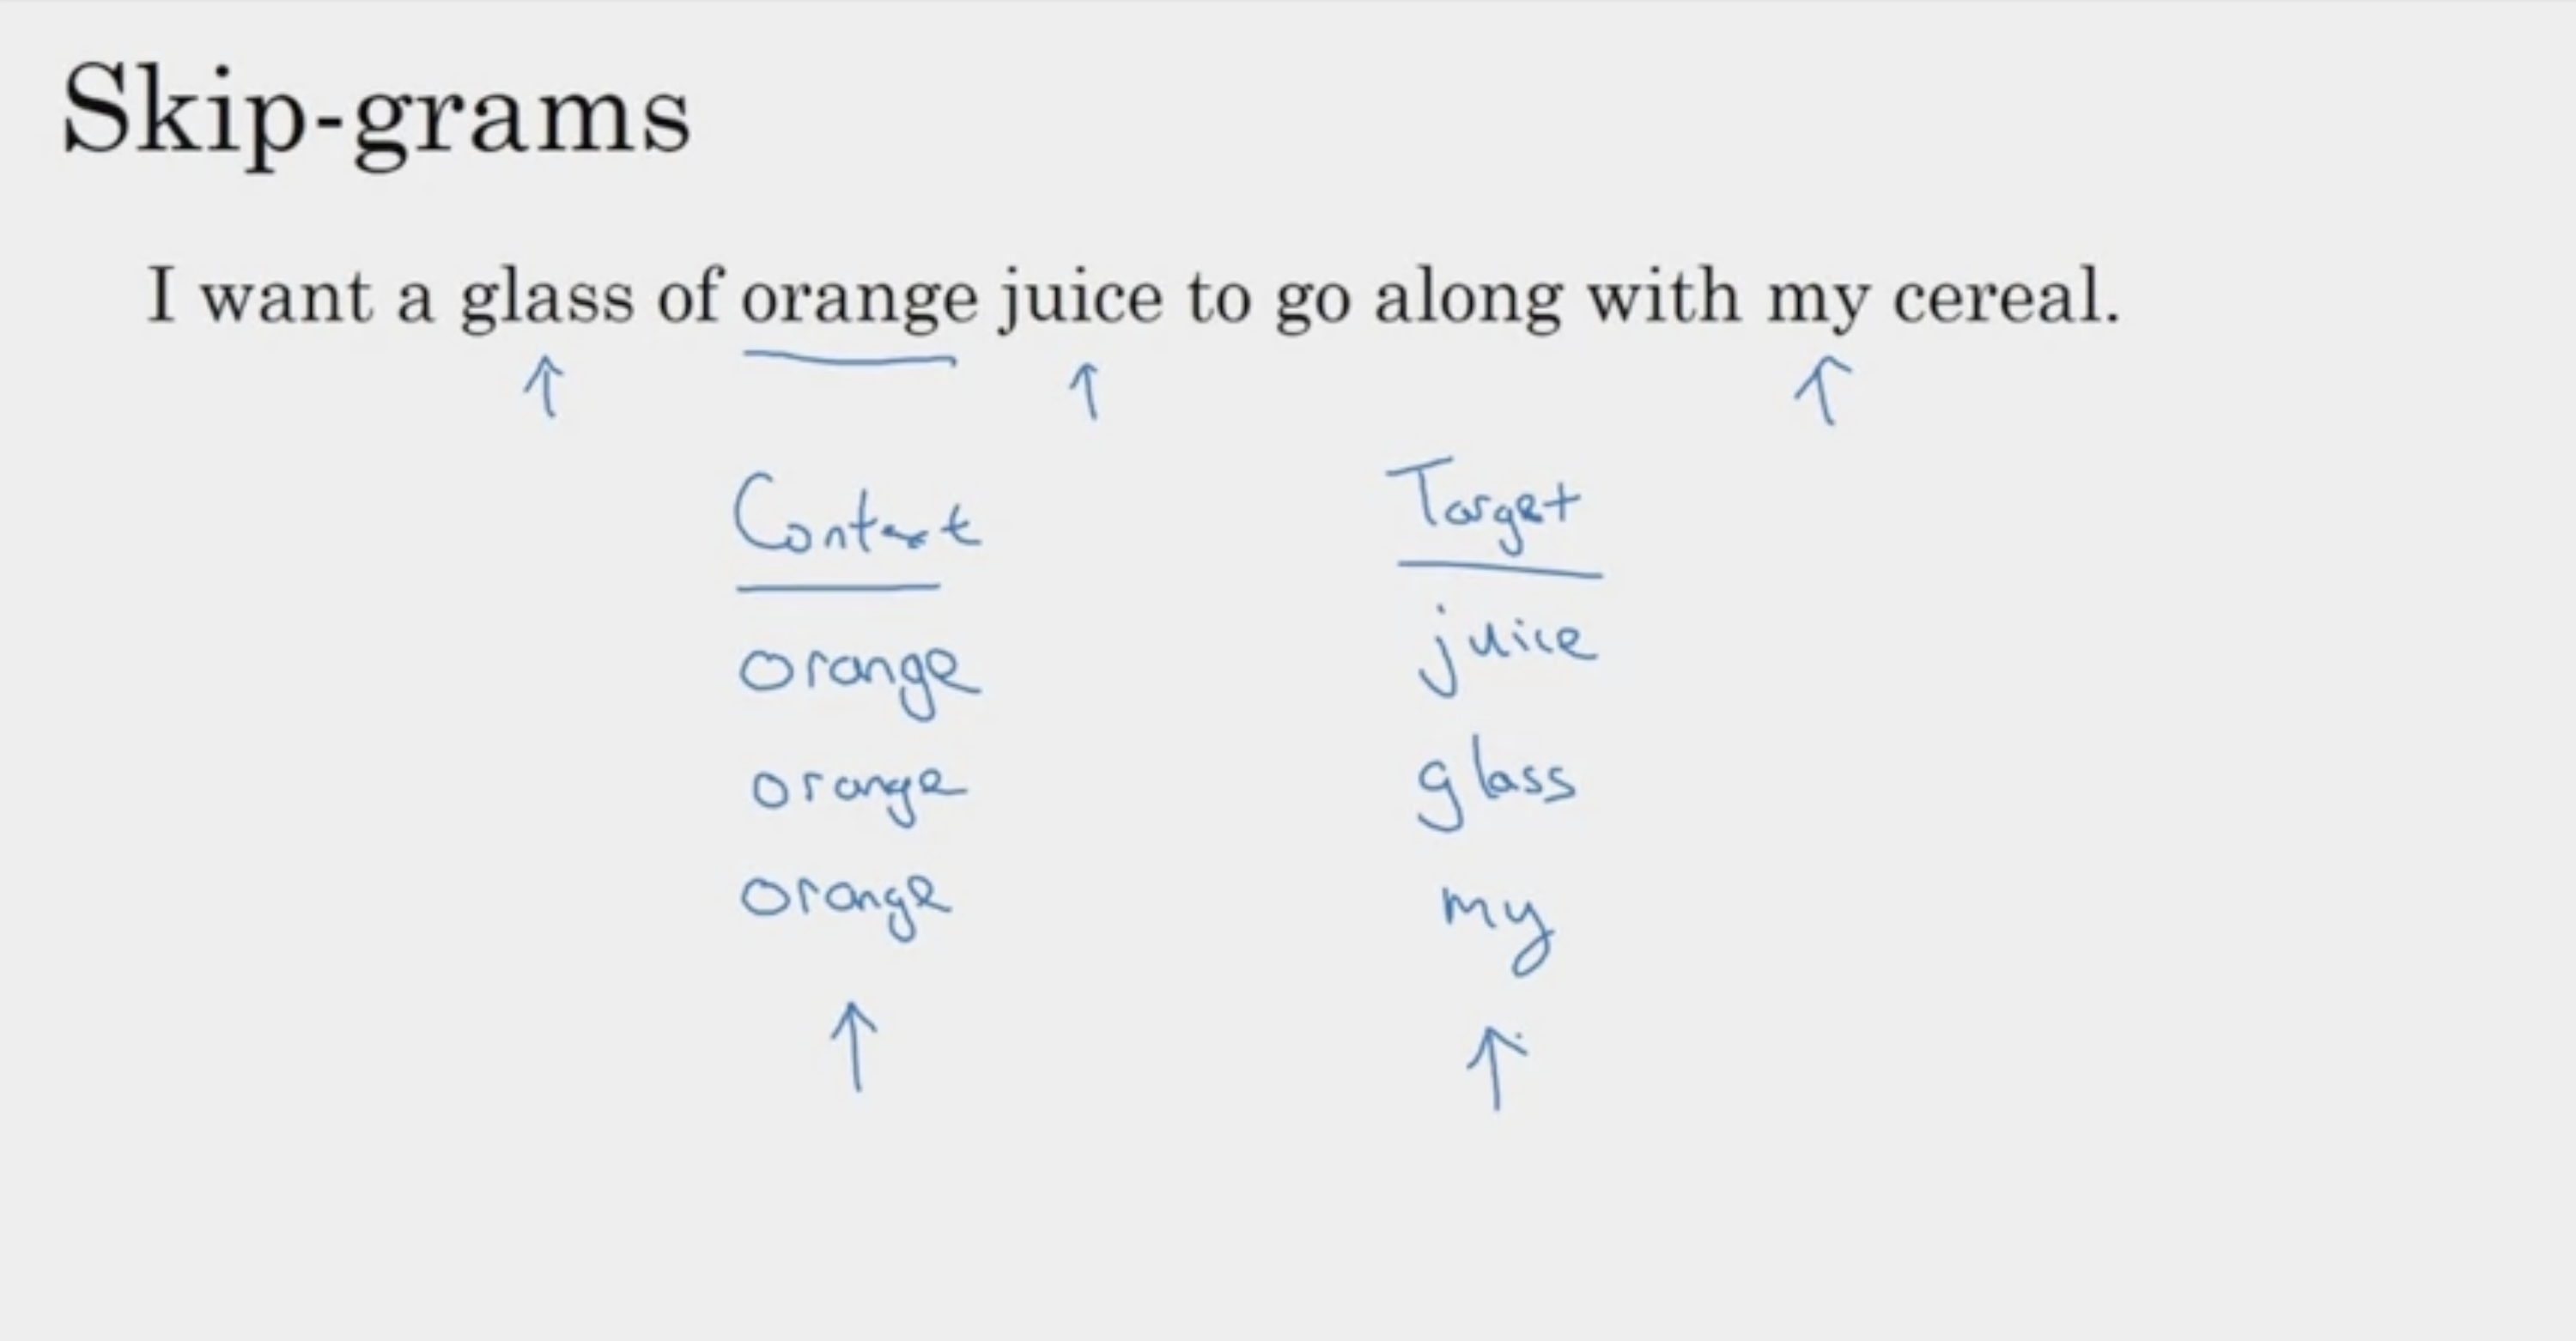 Skip-grams
I want a glass of orange juice to go along with my cereal.
Context Target
orange juice
orange glass
orange my